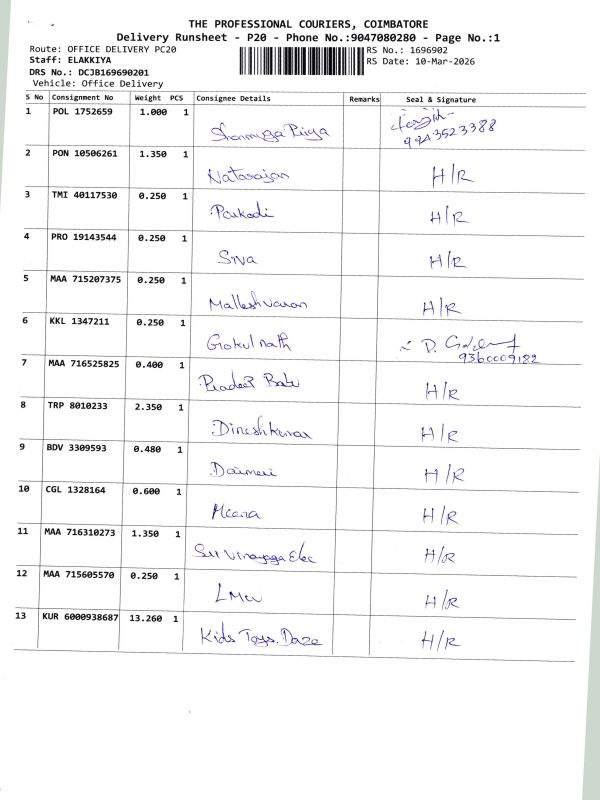 THE PROFESSIONAL COURIERS, COIMBATORE
Delivery Runsheet - P20 - Phone No.:9047080280 - Page No.:1
Route: OFFICE DELIVERY PC20
RS No.: 1696902
Staff: ELAKKIYA
RS Date: 10-Mar-2026
DRS No.: DCJB169690201
Vehicle: Office Delivery
S No Consignment No Weight PCS Consignee Details Remarks Seal & Signature
1 POL 1752659 1.000 1 Shanmuga Priya 9943523388
2 PON 10506261 1.350 1 Natarajan H/R
3 TMI 40117530 0.250 1 Parkodi H/R
4 PRO 19143544 0.250 1 Siva H/R
5 MAA 715207375 0.250 1 Malleshvaran H/R
6 KKL 1347211 0.250 1 Gokulnath D. 9360009182
7 MAA 716525825 0.400 1 Pradeep Babu H/R
8 TRP 8010233 2.350 1 Dineshkumar H/R
9 BDV 3309593 0.480 1 H/R
10 CGL 1328164 0.600 1 Meena H/R
11 MAA 716310273 1.350 1 Sri Vinayaga Elec H/R
12 MAA 715605570 0.250 1 LMW H/R
13 KUR 6000938687 13.260 1 Kids Toys. Daze H/R